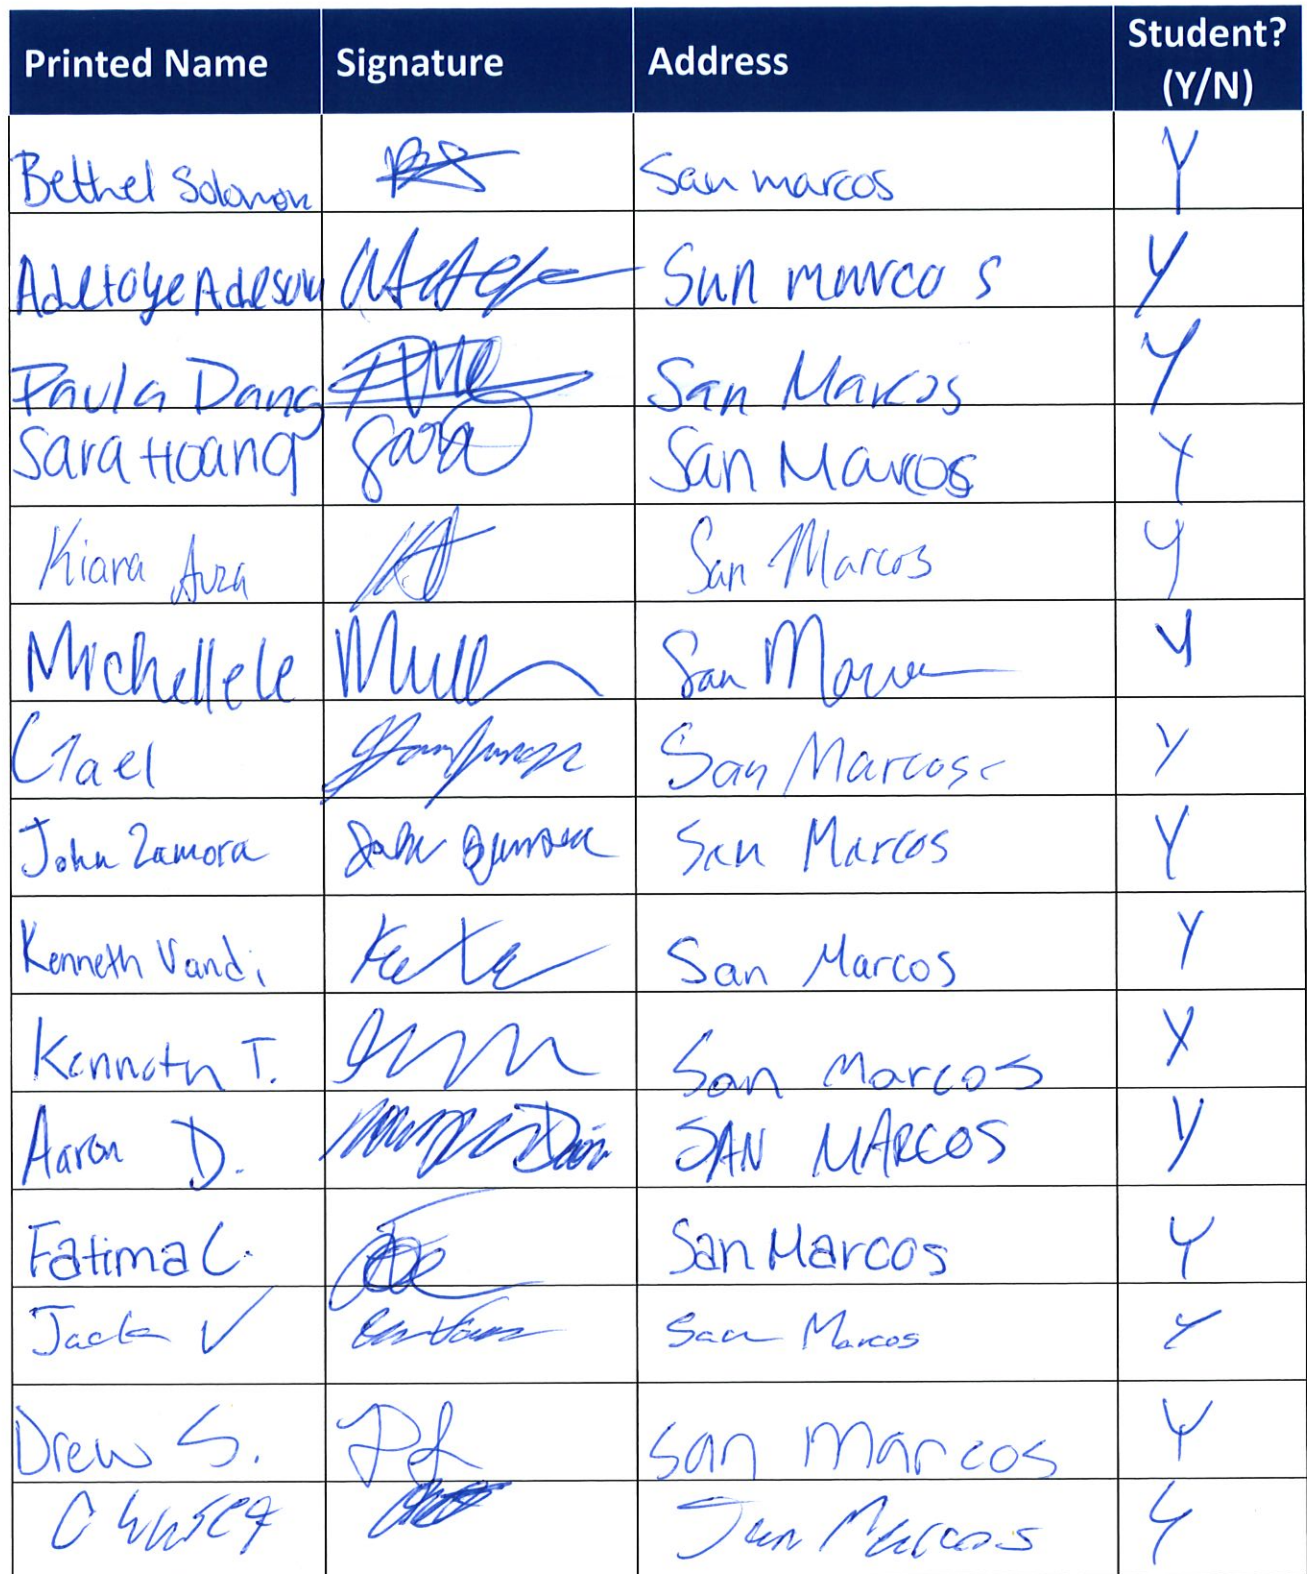 Printed Name Signature Address Student? (Y/N)
Bethel Solomon San marcos Y
Adetoye San marcos Y
Paula Dang San Marcos Y
Sara Hoang Sara San Marcos Y
Kiara San Marcos Y
Michelle le San Y
San Marcos Y
John Zamora John Zamora San Marcos Y
Kenneth Vandi San Marcos Y
Kenneth T. San Marcos Y
Aaron D. SAN MARCOS Y
Fatima C. San Marcos Y
Jack V San Marcos Y
Drew S. San Marcos Y
San Marcos Y